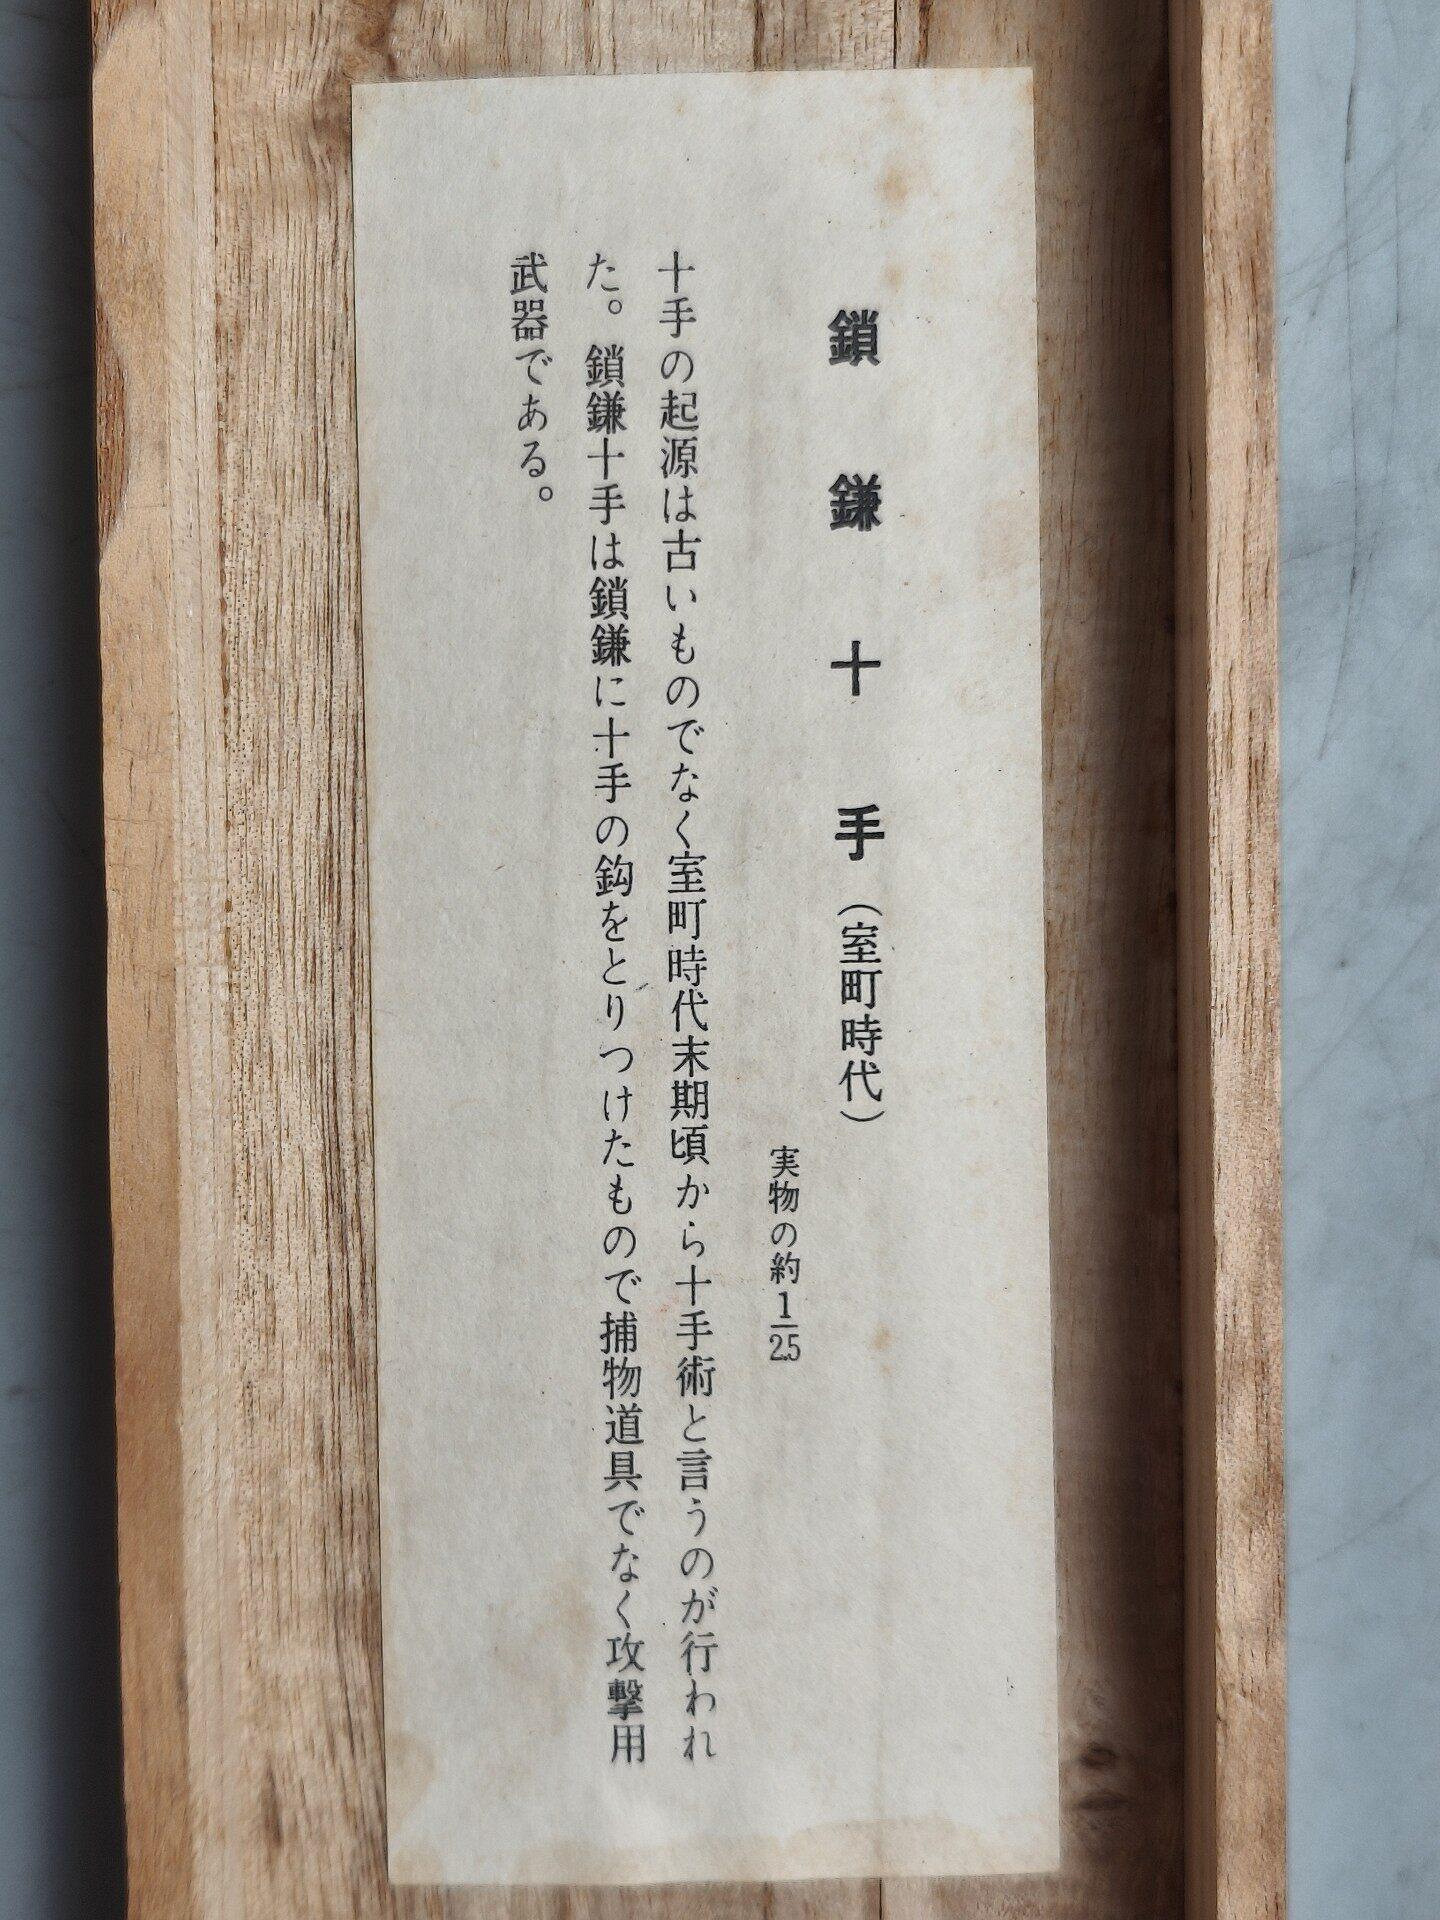 鎖鎌十手（室町時代）
実物の約1/2.5
十手の起源は古いものでなく室町時代末期頃から十手術と言うのが行われ
た。鎖鎌十手は鎖鎌に十手の鈎をとりつけたもので捕物道具でなく攻撃用
武器である。